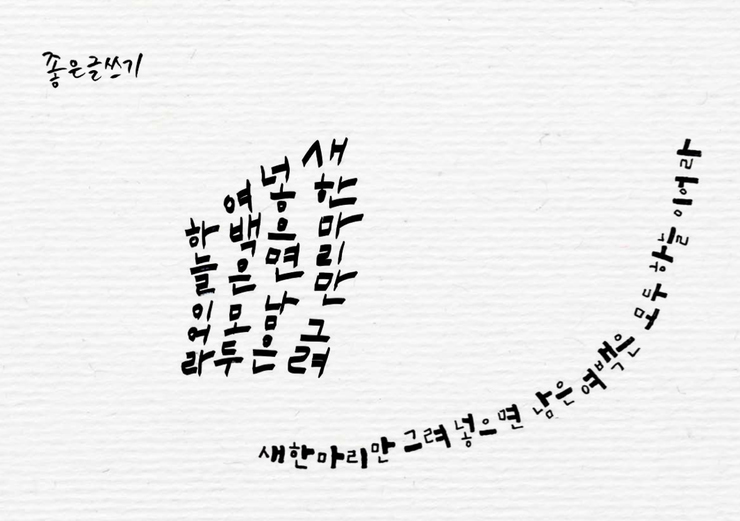 좋은글쓰기
새한마리만 그려
넣으면 남은
여백은 모두
하늘이어라
새한마리만 그려 넣으면 남은 여백은 모두 하늘 이어라